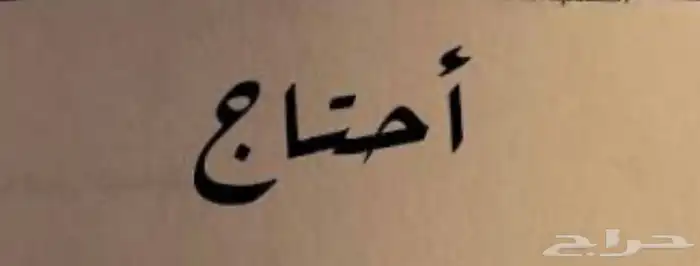 أحتاج
حراج